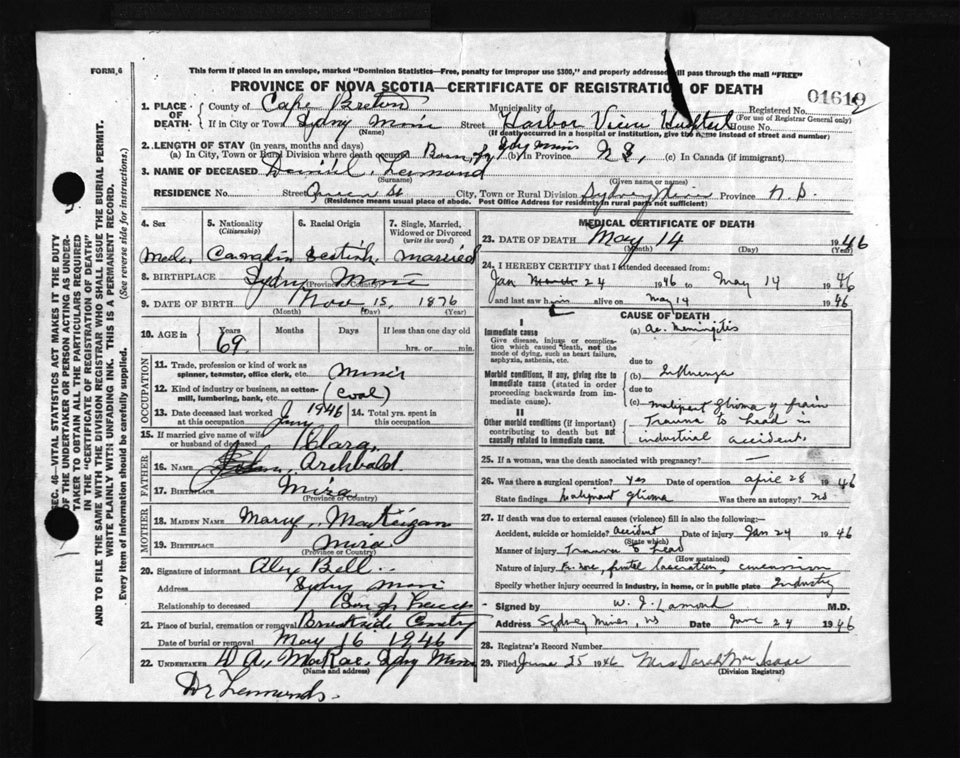 FORM 6
This form if placed in an envelope, marked "Dominion Statistics—Free, penalty for improper use $300," and properly addressed will pass through the mail "FREE"
PROVINCE OF NOVA SCOTIA—CERTIFICATE OF REGISTRATION OF DEATH
01619
1. PLACE OF DEATH— County of Cape Breton Municipality of Registered No. (For use of Registrar General only)
If in City or Town Sydney Mines (Name) Street Harbor View House No.
(If death occurred in a hospital or institution, give the name instead of street and number)
2. LENGTH OF STAY (in years, months and days)
(a) In City, Town or Rural Division where death occurred Born (b) In Province N S, (c) In Canada (if immigrant)
3. NAME OF DECEASED Daniel (Surname) (Given name or names)
RESIDENCE No. Street Queen St City, Town or Rural Division Sydney Mines Province N. S.
(Residence means usual place of abode. Post Office Address for residents in rural parts not sufficient)
4. Sex 5. Nationality (Citizenship) 6. Racial Origin 7. Single, Married, Widowed or Divorced (write the word)
Male married
8. BIRTHPLACE Sydney Mines (Province or Country)
9. DATE OF BIRTH Nov 15, 1876
(Month) (Day) (Year)
10. AGE in Years Months Days If less than one day old
69 hrs. or min.
OCCUPATION
11. Trade, profession or kind of work as spinner, teamster, office clerk, etc. Miner
12. Kind of industry or business, as cotton-mill, lumbering, bank, etc. (Coal)
13. Date deceased last worked at this occupation 1946 14. Total yrs. spent in this occupation
15. If married give name of wife or husband of deceased Clara
FATHER
16. NAME Archibald
17. BIRTHPLACE Mira
(Province or Country)
MOTHER
18. MAIDEN NAME Mary
19. BIRTHPLACE Mira
(Province or Country)
20. Signature of informant Alex Bell
Address Sydney Mines
Relationship to deceased
21. Place of burial, cremation or removal
Date of burial or removal May 16 1946
22. UNDERTAKER Sydney Mines
(Name and address)
MEDICAL CERTIFICATE OF DEATH
23. DATE OF DEATH May 14 1946
(Month) (Day) (Year)
24. I HEREBY CERTIFY that I attended deceased from:
Jan 24 1946 to May 14 1946
and last saw him alive on May 14 1946
CAUSE OF DEATH
I
Immediate cause (a) Ac. Meningitis
Give disease, injury or complication which caused death, not the mode of dying, such as heart failure, asphyxia, asthenia, etc.
due to
Morbid conditions, if any, giving rise to immediate cause (stated in order proceeding backwards from immediate cause). (b) Influenza
due to
(c) malignant glioma of brain
II
Other morbid conditions (if important) contributing to death but not causally related to immediate cause. Trauma to head in industrial accident
25. If a woman, was the death associated with pregnancy? —
26. Was there a surgical operation? yes Date of operation April 28 1946
State findings Malignant glioma Was there an autopsy? no
27. If death was due to external causes (violence) fill in also the following:—
Accident, suicide or homicide? accident Date of injury Jan 24 1946
(State which)
Manner of injury Trauma to head
(How sustained)
Nature of injury
Specify whether injury occurred in industry, in home, or in public place Industry
Signed by M.D.
Address Sydney Mines, NS Date June 24 1946
28. Registrar's Record Number
29. Filed June 25 1946 Mrs Sarah
(Division Registrar)
SEC. 46—VITAL STATISTICS ACT MAKES IT THE DUTY OF THE UNDERTAKER OR PERSON ACTING AS UNDERTAKER TO OBTAIN ALL THE PARTICULARS REQUIRED IN THE "CERTIFICATE OF REGISTRATION OF DEATH" AND TO FILE THE SAME WITH THE DIVISION REGISTRAR WHO SHALL ISSUE THE BURIAL PERMIT.
WRITE PLAINLY WITH UNFADING INK. THIS IS A PERMANENT RECORD.
Every item of information should be carefully supplied. (See reverse side for instructions.)